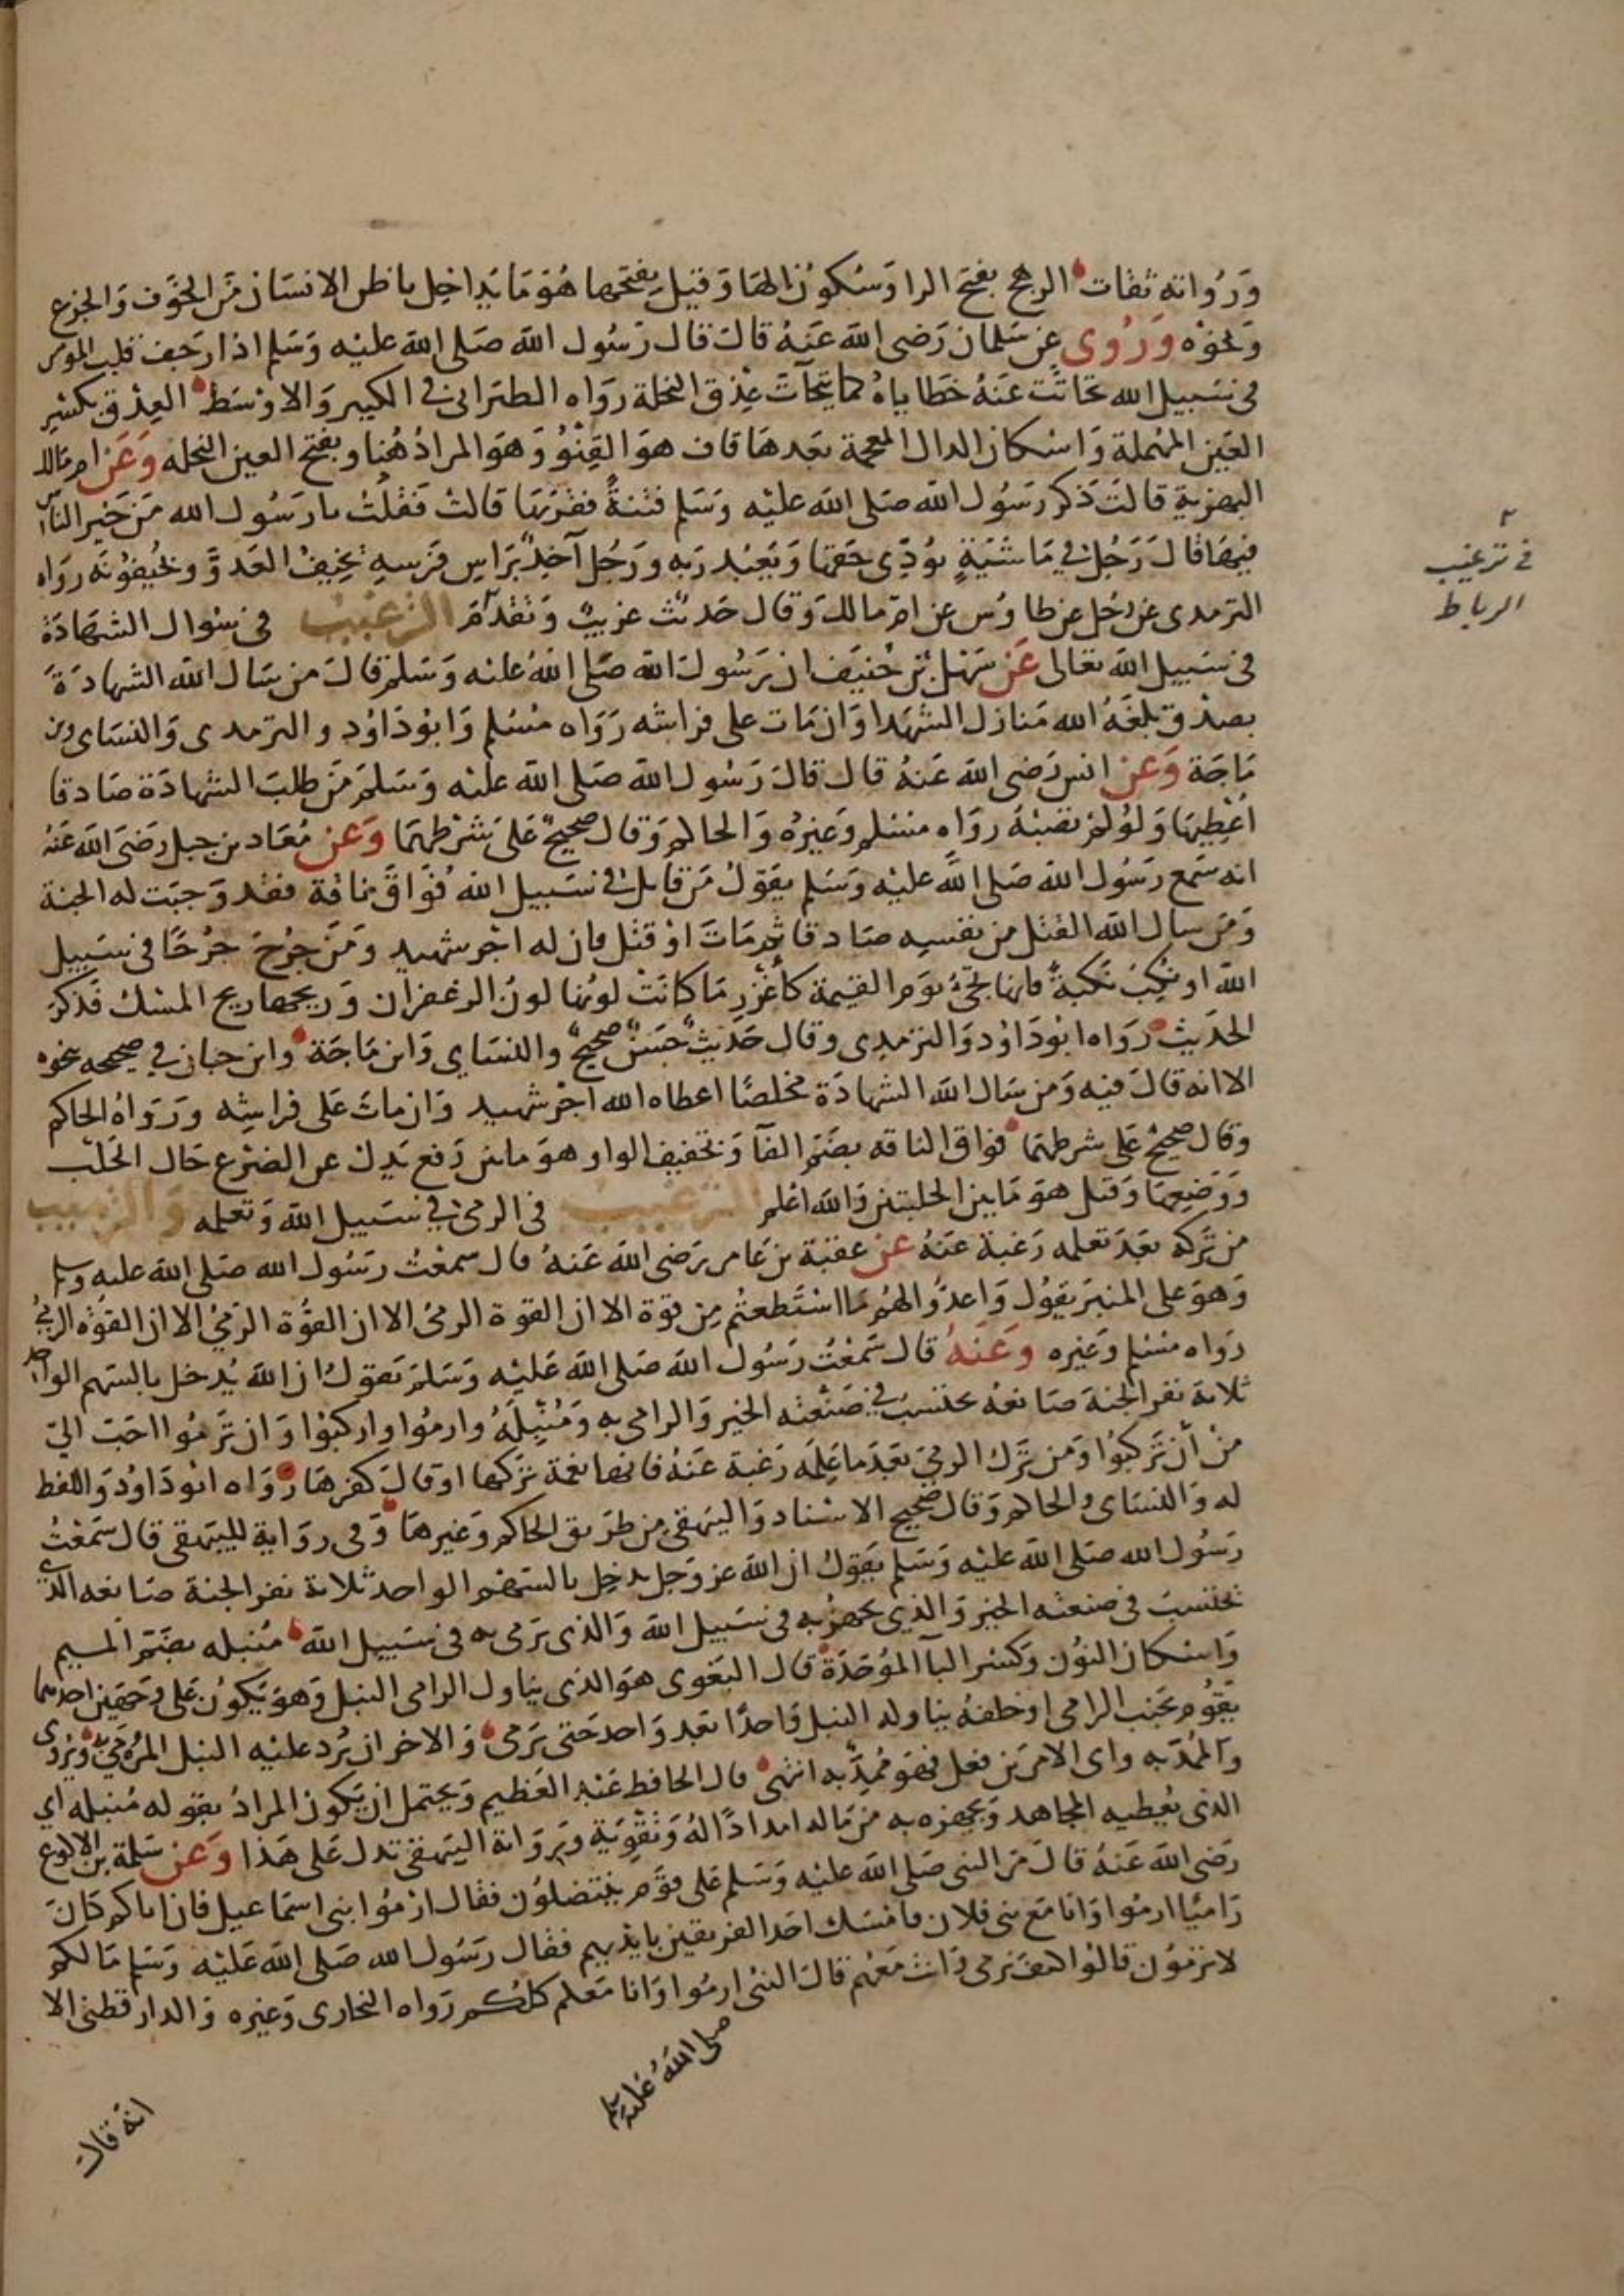 ورواته ثقات الرهج بفتح الرا وسكون الها وقيل بفتحها هو ما يداخل باطن الانسان من الخوف والجزع
ونحوه وروى عن سلمان رضى الله عنه قال قال رسول الله صلى الله عليه وسلم اذا رجف قلب المومن
فى سبيل الله تحاتت عنه خطاياه كما يتحات عذق النخلة رواه الطبرانى فى الكبير والاوسط العذق بكسر
العين المهملة واسكان الدال المعجمة بعدها قاف هو القنو وهو المراد هنا وبفتح العين النخله وعن ام مالك
البهزية قالت ذكر رسول الله صلى الله عليه وسلم فتنة فقربها قالت فقلت يا رسول الله من خير الناس
فيها قال رجل فى ماشية يودى حقها ويعبد ربه ورجل آخذ براس فرسه يخيف العدو ويخيفونه رواه
الترمدى عن رجل عن طاوس عن ام مالك وقال حديث غريب وتقدم الترغيب فى سوال الشهادة
فى سبيل الله تعالى عن سهل بن حنيف ان رسول الله صلى الله عليه وسلم قال من سال الله الشهادة
بصدق بلغه الله منازل الشهدا وان مات على فراشه رواه مسلم وابو داود والترمدى والنساى وبن
ماجة وعن انس رضى الله عنه قال قال رسول الله صلى الله عليه وسلم من طلب الشهادة صادقا
اعطيها ولو لم تصبه رواه مسلم وغيره والحاكم وقال صحيح على شرطهما وعن معاد بن جبل رضى الله عنه
انه سمع رسول الله صلى الله عليه وسلم يقول من قاتل فى سبيل الله فواق ناقة فقد وجبت له الجنة
ومن سال الله القتل من نفسه صادقا ثم مات او قتل فان له اجر شهيد ومن جرح جرحا فى سبيل
الله او نكب نكبة فانها تجئ يوم القيمة كاغزر ما كانت لونها لون الزعفران وريحها ريح المسك فذكر
الحديث رواه ابو داود والترمدى وقال حديث حسن صحيح والنساى وابن ماجة وابن حبان فى صحيحه بنحوه
الا انه قال فيه ومن سال الله الشهادة مخلصا اعطاه الله اجر شهيد وان مات على فراشه ورواه الحاكم
وقال صحيح على شرطهما فواق الناقه بضم الفا وتخفيف الواو هو ما بين رفع يدك عن الضرع حال الحلب
ووضعها وقيل هو ما بين الحلبتين والله اعلم الترغيب فى الرمى فى سبيل الله وتعلمه والترهيب
من تركه بعد تعلمه رغبة عنه عن عقبة بن عامر رضى الله عنه قال سمعت رسول الله صلى الله عليه وسلم
وهو على المنبر يقول واعدوا لهم ما استطعتم من قوة الا ان القوة الرمى الا ان القوة الرمى الا ان القوة الرمى
رواه مسلم وغيره وعنه قال سمعت رسول الله صلى الله عليه وسلم يقول ان الله يدخل بالسهم الواحد
ثلاثة نفر الجنة صانعه يحتسب فى صنعته الخير والرامى به ومنبله وارموا واركبوا وان ترموا احب الى
من أن تركبوا ومن ترك الرمى بعد ما علمه رغبة عنه فانها نعمة تركها او قال كفرها رواه ابو داود واللفظ
له والنساى والحاكم وقال صحيح الاسناد والبيهقى من طريق الحاكم وغيرها وفى رواية للبيهقى قال سمعت
رسول الله صلى الله عليه وسلم يقول ان الله عز وجل يدخل بالسهم الواحد ثلاثة نفر الجنة صانعه الذى
يحتسب فى صنعته الخير والذى يجهز به فى سبيل الله والذى يرمى به فى سبيل الله منبله بضم الميم
واسكان النون وكسر البا الموحدة قال البغوى هو الذى يناول الرامى النبل وهو يكون على وجهين احدهما
يقوم بجنب الرامى او خلفه يناوله النبل واحدا بعد واحد حتى يرمى والاخر ان يرد عليه النبل المرمى به ويروى
والممد به واى الامرين فعل فهو ممد به انتهى قال الحافظ عبد العظيم ويحتمل ان يكون المراد بقوله منبله اى
الذى يعطيه المجاهد ويجهزه به من ماله امدادا له وتقوية ورواية البيهقى تدل على هذا وعن سلمة بن الاكوع
رضى الله عنه قال مر النبى صلى الله عليه وسلم على قوم ينتضلون فقال ارموا بنى اسماعيل فان اباكم كان
راميا ارموا وانا مع بنى فلان فامسك احد الفريقين بايديهم فقال رسول الله صلى الله عليه وسلم ما لكم
لا ترمون قالوا كيف نرمى وانت معهم قال النبى ارموا وانا معكم كلكم رواه البخارى وغيره والدارقطنى الا
صلى الله عليه وسلم
انه قال
فى ترغيب
الرباط